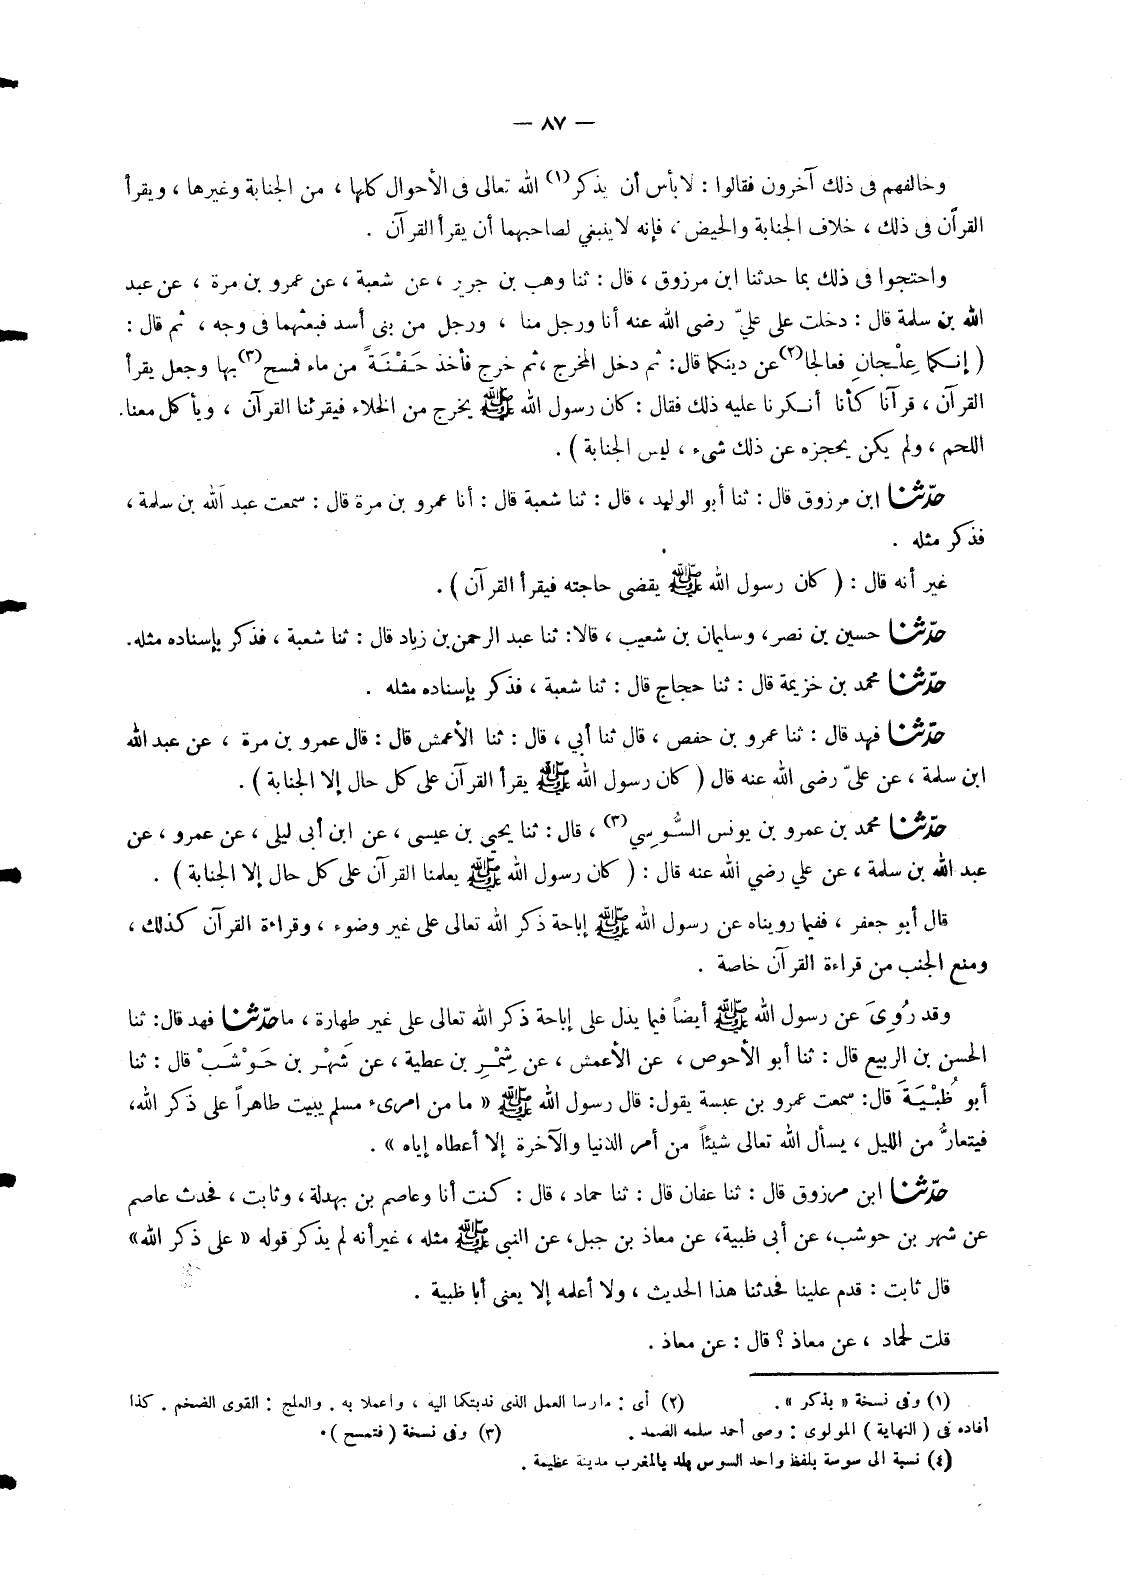 — ٨٧ —
وخالفهم فى ذلك آخرون فقالوا : لا بأس أن يذكر(١) الله تعالى فى الأحوال كلها ، من الجنابة وغيرها ، ويقرأ
القرآن فى ذلك ، خلاف الجنابة والحيض ، فإنه لا ينبغي لصاحبهما أن يقرأ القرآن .
واحتجوا فى ذلك بما حدثنا ابن مرزوق ، قال : ثنا وهب بن جرير ، عن شعبة ، عن عمرو بن مرة ، عن عبد
الله بن سلمة قال : دخلت على عليّ رضى الله عنه أنا ورجل منا ، ورجل من بنى أسد فبعثهما فى وجه ، ثم قال :
( إنـكما عِلْـجانِ فعالجا(٢) عن دينكما قال: ثم دخل المخرج ، ثم خرج فأخذ حَـفْـنَـةً من ماء فمسح(٣) بها وجعل يقرأ
القرآن ، قرآنا كأنا أنـكرنا عليه ذلك فقال : كان رسول الله ﷺ يخرج من الخلاء فيقرئنا القرآن ، ويأكل معنا.
اللحم ، ولم يكن يحجزه عن ذلك شىء ، ليس الجنابة ) .
حدّثنا ابن مرزوق قال : ثنا أبو الوليد ، قال : ثنا شعبة قال : أنا عمرو بن مرة قال : سمعت عبد الله بن سلمة ،
فذكر مثله .
غير أنه قال : ( كان رسول الله ﷺ يقضى حاجته فيقرأ القرآن ) .
حدّثنا حسين بن نصر، وسليمان بن شعيب ، قالا: ثنا عبد الرحمن بن زياد قال : ثنا شعبة ، فذكر بإسناده مثله.
حدّثنا محمد بن خزيمة قال : ثنا حجاج قال : ثنا شعبة ، فذكر بإسناده مثله .
حدّثنا فهد قال : ثنا عمرو بن حفص ، قال ثنا أبي ، قال : ثنا الأعمش قال : قال عمرو بن مرة ، عن عبد الله
ابن سلمة ، عن عليّ رضى الله عنه قال ( كان رسول الله ﷺ يقرأ القرآن على كل حال إلا الجنابة ) .
حدّثنا محمد بن عمرو بن يونس السُّوسِي(٣) ، قال : ثنا يحيى بن عيسى ، عن ابن أبى ليلى ، عن عمرو ، عن
عبد الله بن سلمة ، عن علي رضي الله عنه قال : ( كان رسول الله ﷺ يعلمنا القرآن على كل حال إلا الجنابة ) .
قال أبو جعفر ، ففيما رويناه عن رسول الله ﷺ إباحة ذكر الله تعالى على غير وضوء ، وقراءة القرآن كذلك ،
ومنع الجنب من قراءة القرآن خاصة .
وقد رُوِىَ عن رسول الله ﷺ أيضاً فيما يدل على إباحة ذكر الله تعالى على غير طهارة ، ما حدّثنا فهد قال: ثنا
الحسن بن الربيع قال : ثنا أبو الأحوص ، عن الأعمش ، عن شِمْرِ بن عطية ، عن شَهْرِ بن حَوْشَبْ قال : ثنا
أبو ظُبْـيَـةَ قال: سمعت عمرو بن عبسة يقول: قال رسول الله ﷺ « ما من امرىء مسلم يبيت طاهراً على ذكر الله،
فيتعارُّ من الليل ، يسأل الله تعالى شيئاً من أمر الدنيا والآخرة إلا أعطاه إياه » .
حدّثنا ابن مرزوق قال : ثنا عفان قال : ثنا حماد ، قال : كنت أنا وعاصم بن بهدلة ، وثابت ، فحدث عاصم
عن شهر بن حوشب، عن أبى ظبية، عن معاذ بن جبل، عن النبى ﷺ مثله ، غير أنه لم يذكر قوله « على ذكر الله»
قال ثابت : قدم علينا فحدثنا هذا الحديث ، ولا أعلمه إلا يعنى أبا ظبية .
قلت لحماد ، عن معاذ ؟ قال : عن معاذ .
(١) وفى نسخة « يذكر » . (٢) أى : مارسا العمل الذى ندبتكما اليه ، واعملا به . والعلج : القوى الضخم . كذا
أفاده فى ( النهاية ) المولوى : وصى أحمد سلمه الصمد . (٣) وفى نسخة ( فتمسح ) .
(٤) نسبة الى سوسة بلفظ واحد السوس بلد بالمغرب مدينة عظيمة .